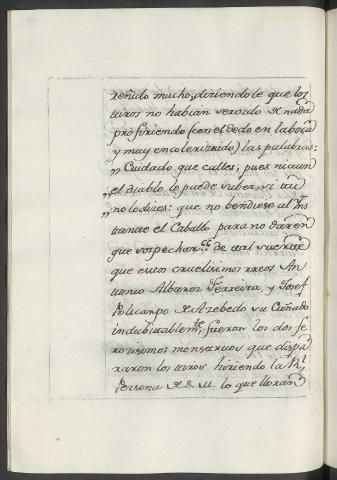 reñido mucho, diciendole que los
tiros no habian servido de nada
profiriendo (con el dedo en la boca
y muy encolerizado) las palabras:
„ Cuidado que calles; pues ni aun
„ el diablo lo puede saber, si tu
„ no lo dices: que no bendiere al Ins
tante el Caballo para no dar en
que sospechar: de tal suerte
que estos cruelisimos rreos An
tonio Albares Ferreira, y Josef
Policarpo de Azebedo su Cuñado
indubitablemte. fueron los dos fe
rosisimos monstruos que dispa
raron los tiros hiriendo la Rl.
Persona de S. M. lo que lloran